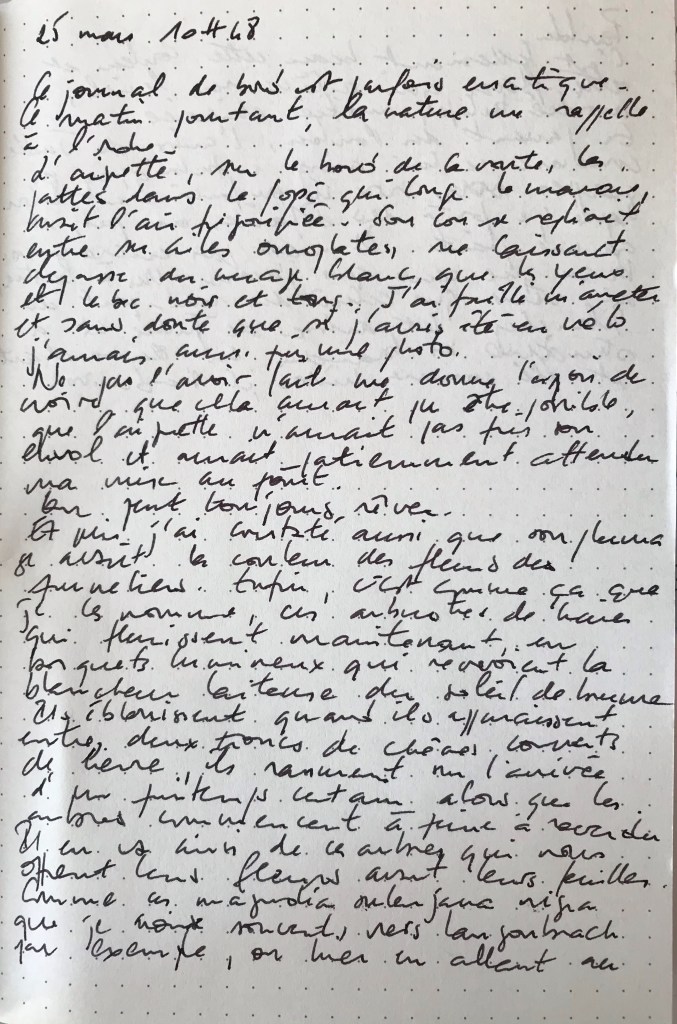 25 mars 10H48
Ce journal de bord est parfois erratique.
Ce matin pourtant, la nature me rappelle
à l'ordre
d'aigrette, sur le bord de la route, les
pattes dans le fossé qui longe le marais,
l'air frigorifiée. Son cou se repliant
entre ses ailes omoplates, ne laissant
dépasser du nuage blanc, que les yeux
et le bec noir et long. J'ai failli m'arrêter
et sans doute que si j'avais été en vélo
j'aurais aussi pris une photo.
Ne pas l'avoir fait me donne l'espoir de
croire que cela aurait pu être possible,
que l'aigrette n'aurait pas pris son
envol et aurait patiemment attendu
ma mise au point.
On peut toujours rêver.
Et puis j'ai constaté aussi que son plumage
avait la couleur des fleurs des
prunelliers. Enfin, c'est comme ça que
je les nomme, ces arbustes de haies
qui fleurissent maintenant, en
bosquets lumineux qui revoient la
blancheur laiteuse du soleil de brume
Ils éblouissent quand ils apparaissent
entre deux troncs de chênes couverts
de lierre, ils rassurent sur l'arrivée
d'un printemps certain alors que les
arbres commencent à peine à reverdir
Il en va ainsi de ces arbres qui nous
offrent leurs fleurs avant leurs feuilles.
Comme ces magnolia soulangeana nigra
que je croise souvent vers
par exemple, ou hier en allant au